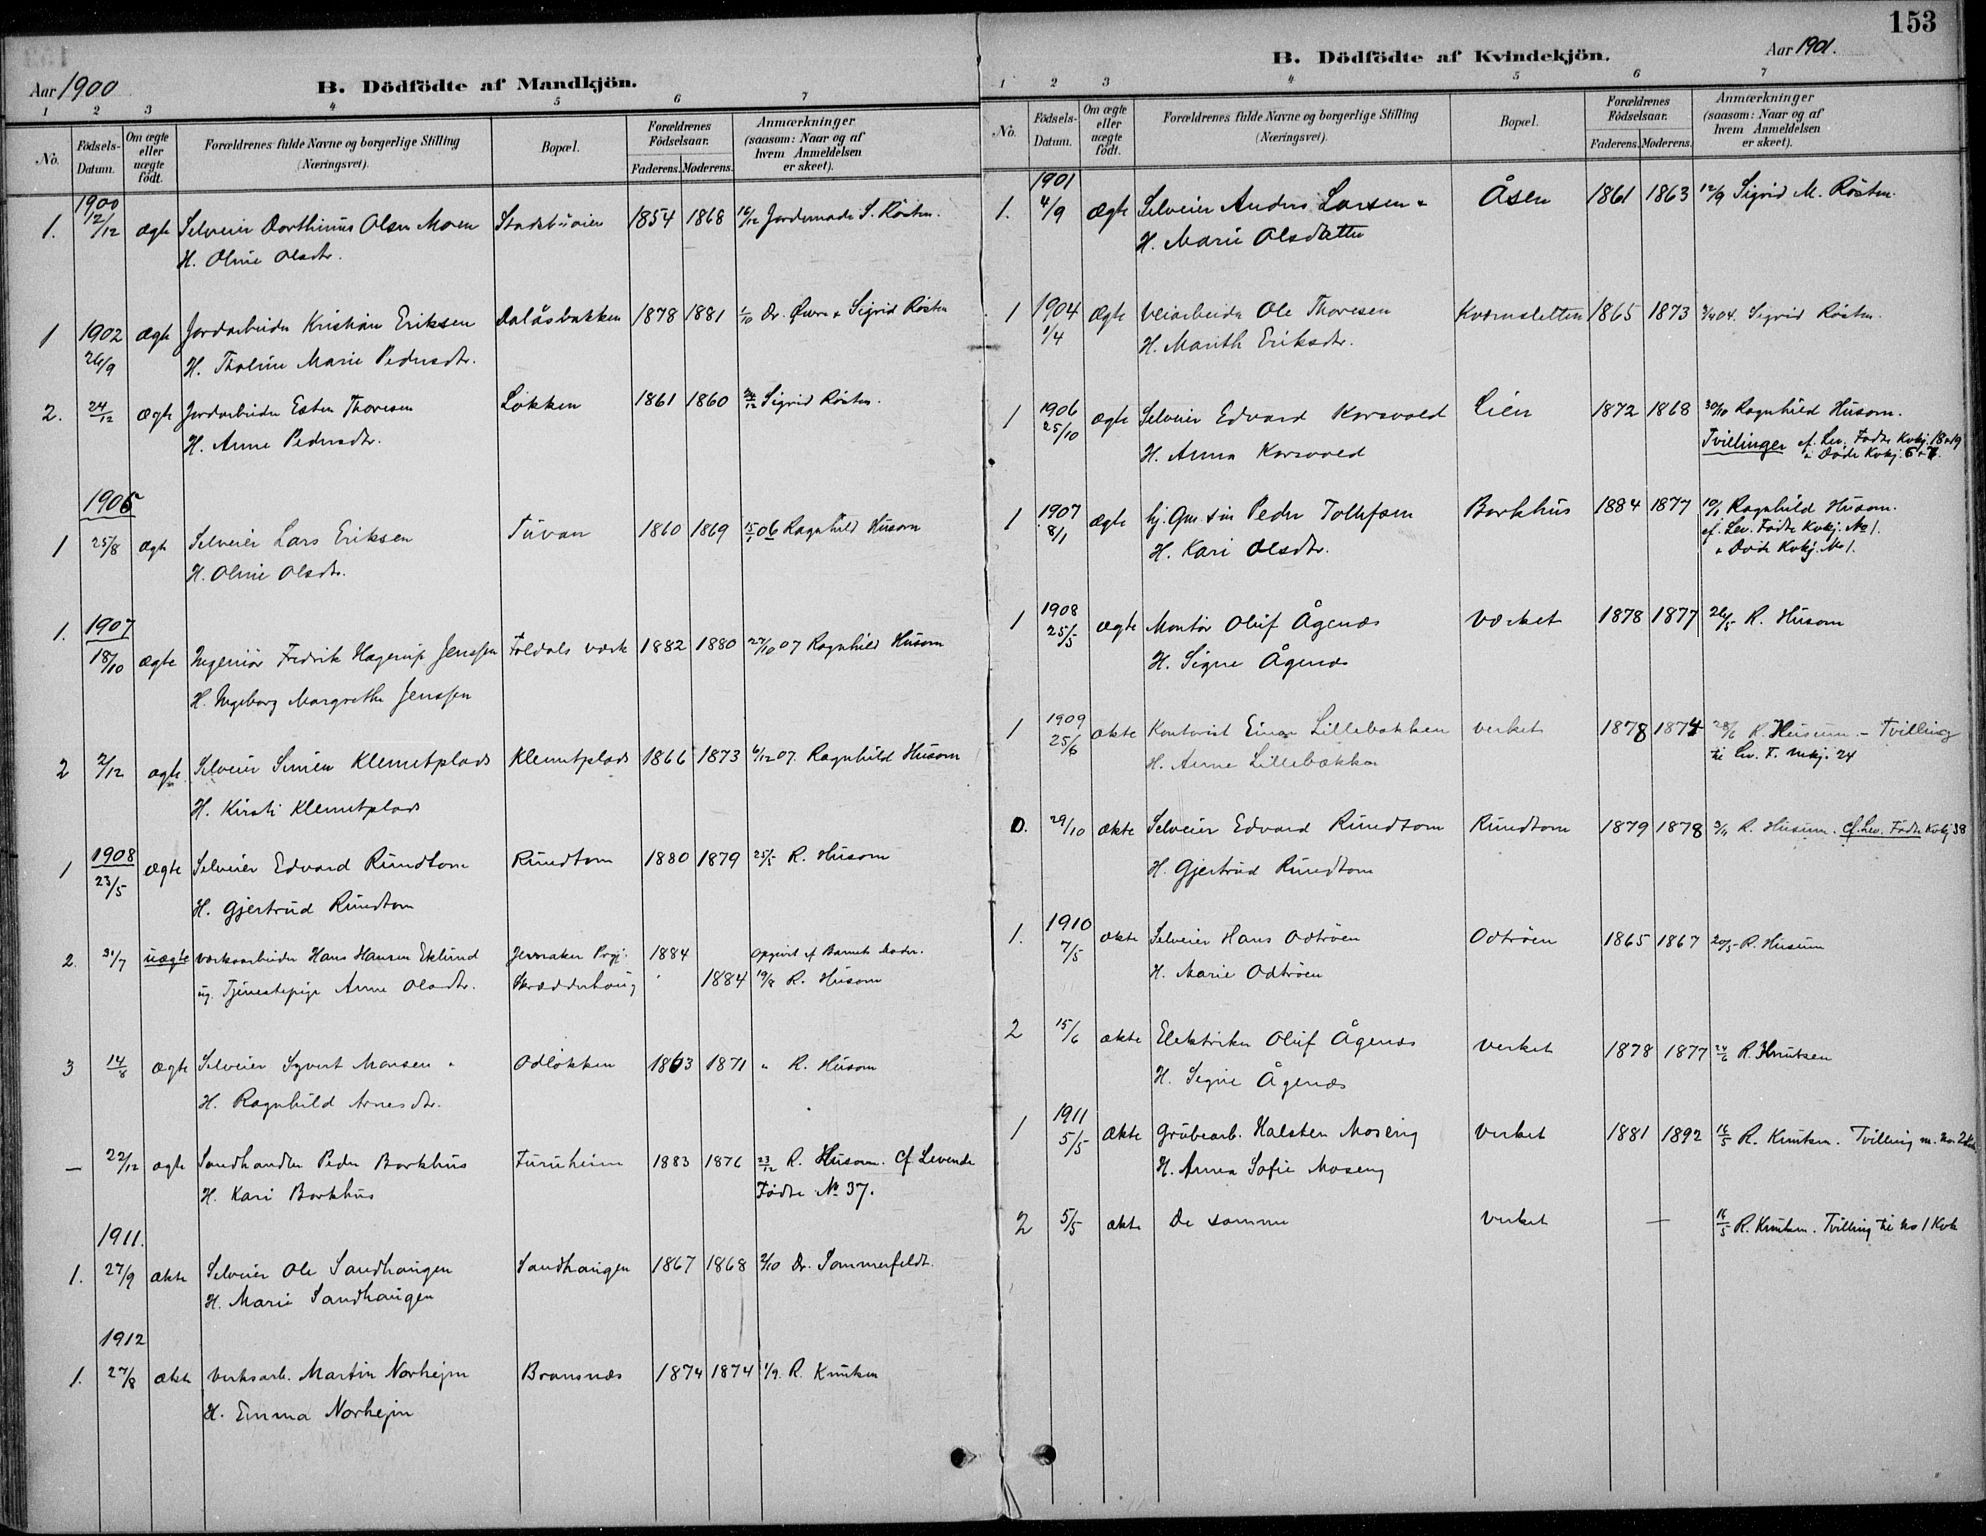 153
Aar 1900
B. Dödfödte af Mandkjön.
1 2 3 4 5 6 7
No.
Födsels-Datum.
Om ægte eller uægte födt.
Forældrenes fulde Navne og borgerlige Stilling (Næringsvei).
Bopæl.
Forældrenes Födselsaar.
Faderens. Moderens.
Anmærkninger (saasom: Naar og af hvem Anmeldelsen er skeet).
1900
1. 12/12 ægte Selveier Dorthinus Olsen Moen 1854 1868 16/12 Jordemode S. Røsten.
H. Oline Olsdtr.
1 1902 ægte Jordarbeider Kristian Eriksen Dalåsbakken 1878 1881 1/10 Dr. Øvre & Sigrid Røsten
26/9 H. Thaline Marie Pedersdtr.
2. 24/12 ægte Jordarbeider Esten Thoresen Løkken 1861 1860 Sigrid Røsten.
H. Anne Pedersdtr.
1905
1 25/8 ægte Selveier Lars Eriksen Tuvan 1860 1869 06 Ragnhild Husom
H. Oline Olsdtr.
1. 1907
18/10 ægte Ingeniør Fredrik Hagerup Jenssen Foldals værk 1882 1880 27/10 07 Ragnhild Husom
H. Ingeborg Margrethe Jenssen
2 2/12 ægte Selveier Simen Klemetplads Klemetplads 1866 1873 6/12 07. Ragnhild Husom
H. Kirsti Klemetplads
1908
1 23/5 ægte Selveier Edvard Rundtom Rundtom 1880 1879 25/5 R. Husom
H. Gjertrud Rundtom
2. 31/7 uægte værksarbeider Hans Hansen Eklund 1884 Opgivet af Barnets Moder.
ug. Tjenestepige Anne Olsdtr. Skrædderhaug 1884 19/8 R. Husom
3 14/8 ægte Selveier Syvert Monsen Odløkken 1863 1871 " R. Husom
H. Ragnhild Arnesdtr.
— 22/12 ægte Landhandler Peder Borkhus Furuheim 1883 1876 23/12 R. Husom. Cf Levende
H. Kari Borkhus Fødte No 37.
1911.
1. 27/9 ækte Selveier Ole Sandhaugen Sandhaugen 1867 1868 2/10 Dr. Sommerfeldt.
H. Marie Sandhaugen
1912
1. 27/8 ækte Verksarb. Martin Norhejm Bransnæs 1874 1874 1/9. R. Knutsen
H. Emma Norhejm
B. Dödfödte af Kvindekjön.
Aar 1901.
1 2 3 4 5 6 7
No.
Födsels-Datum.
Om ægte eller uægte födt.
Forældrenes fulde Navne og borgerlige Stilling (Næringsvei).
Bopæl.
Forældrenes Födselsaar.
Faderens. Moderens.
Anmærkninger (saasom: Naar og af hvem Anmeldelsen er skeet).
1901
1. 4/9 ægte Selveier Anders Larsen & Åsen 1861 1863 12/9 Sigrid M. Røsten.
H. Marie Olsdatter
1 1904 ægte Veiarbeider Ole Thoresen Kværnsletten 1865 1873 04. Sigrid Røsten.
1/4 H. Marith Eriksdtr.
1 1906 ægte Selveier Edvard Korsvold Lien 1872 1868 30/10 Ragnhild Husom.
25/10 H. Anna Korsvold Tvillinger cf. Lev. Fødte Kvkj. 18 & 19
& Døde Kvkj. 6 & 7.
1 1907 ægte Peder Tollefsen Borkhus 1884 1877 10/1 Ragnhild Husom.
8/1 H. Kari Olsdtr. cf. Lev. Fødte Kvkj. No 1.
& Døde Kvkj. No 1.
1 1908 ægte Montør Oluf Ågenæs Værket 1878 1877 26/5 R. Husom
25/5 H. Signe Ågenæs
1 1909 ækte Kontorist Einar Lillebakken verket 1878 1874 28/6 R. Husum – Tvilling
25/6 H. Anne Lillebakken til Lev. F. Mkj. 24
0. 29/10 ækte Selveier Edvard Rundtom Rundtom 1879 1878 3/11 R. Husum. Cf. Lev. Fødte Kvkj 38
H. Gjertrud Rundtom
1. 1910 ækte Selveier Hans Odtrøen Odtrøen 1865 1867 20/5 R. Husum
7/5 H. Marie Odtrøen
2 15/6 ækte Elektriker Oluf Ågenæs verket 1878 1877 24/6 R. Knutsen
H. Signe Ågenæs
1 1911 ækte Grubearb. Halsten Moseng verket 1881 1892 16/5 R. Knutsen. Tvilling m. No. 2
5/5 H. Anna Sofie Moseng
2 5/5 ækte De samme verket — 16/5 R. Knutsen. Tvilling til No 1 Kvk